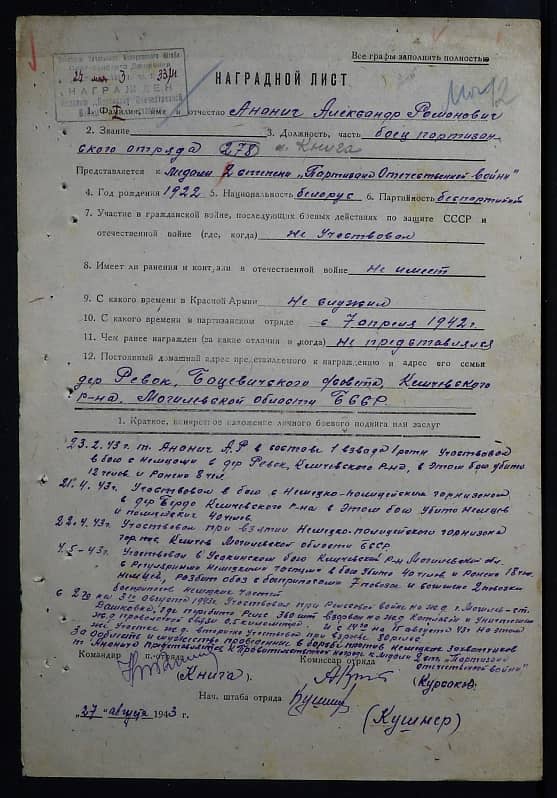 Все графы заполнять полностью
24 мая 3 33/н
НАГРАЖДЕН
НАГРАДНОЙ ЛИСТ
1. Фамилия, имя и отчество Ананич Александр Романович
2. Звание 3. Должность, часть боец партизан-
ского отряда 278 к. Книга
Представляется к медали 2 степени „Партизана Отечественной войны"
4. Год рождения 1922 5. Национальность белорус 6. Партийность беспартийный
7. Участие в гражданской войне, последующих боевых действиях по защите СССР и
отечественной войне (где, когда) не участвовал
8. Имеет ли ранения и контузии в отечественной войне не имеет
9. С какого времени в Красной Армии не служил
10. С какого времени в партизанском отряде с 7 апреля 1942 г.
11. Чем ранее награжден (за какие отличия и когда) не представлялся
12. Постоянный домашний адрес представляемого к награждению и адрес его семьи
дер Ревок, Бацевичского с/совета, Кличевского
р-на, Могилевской области БССР
1. Краткое, конкретное изложение личного боевого подвига или заслуг
23.2.43г. т. Ананич А.Р в составе 1 взвода 1 роты участвовал
в бою с немцами в дер Ревок, Кличевского р-на, в этом бою убито
12 челов и ранено 8 чел.
21.4.43г. Участвовал в бою с немецко-полицейским гарнизоном
в дер Бердо Кличевского р-на в этом бою убито немцев
и полицейских 40 челов.
22.4.43г. Участвовал при взятии немецко-полицейского гарнизона
Кличев Могилевской области БССР.
4.5-43г. Участвовал в Усакинском бою Кличевский р-н Могилевской обл.
с регулярными немецкими частями в бою убито 40 челов и ранено 18 чел.
немцев, разбит обоз с боеприпасами 7 повозок и 2 повозки
боеприпасов немецких частей
с на 3го августа 1943г. Участвовал при рельсовой войне на ж.д. г. Могилев-ст.
где перебито рельс 360 шт взорван на ж.д и уничтожено
ж.д проволочной связи 0,5 километра. на 15 августа 43г на этом
же участке ж.д. вторично участвовал при взрыве 30 рельс.
За доблесть и мужество проявленные в борьбе против немецких захватчиков
т Ананич представляется к Правительственной награде к медали 2 степ. „Партизан
Отечественной войны"
Командир п. отряда
Комиссар отряда
(Книга)
(Курсаков)
Нач. штаба отряда
„27" августа 1943 г.
(Кушнер)